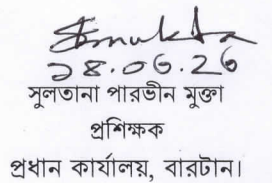 ১৪.০৬.২৬
সুলতানা পারভীন মুক্তা
প্রশিক্ষক
প্রধান কার্যালয়, বারটান।